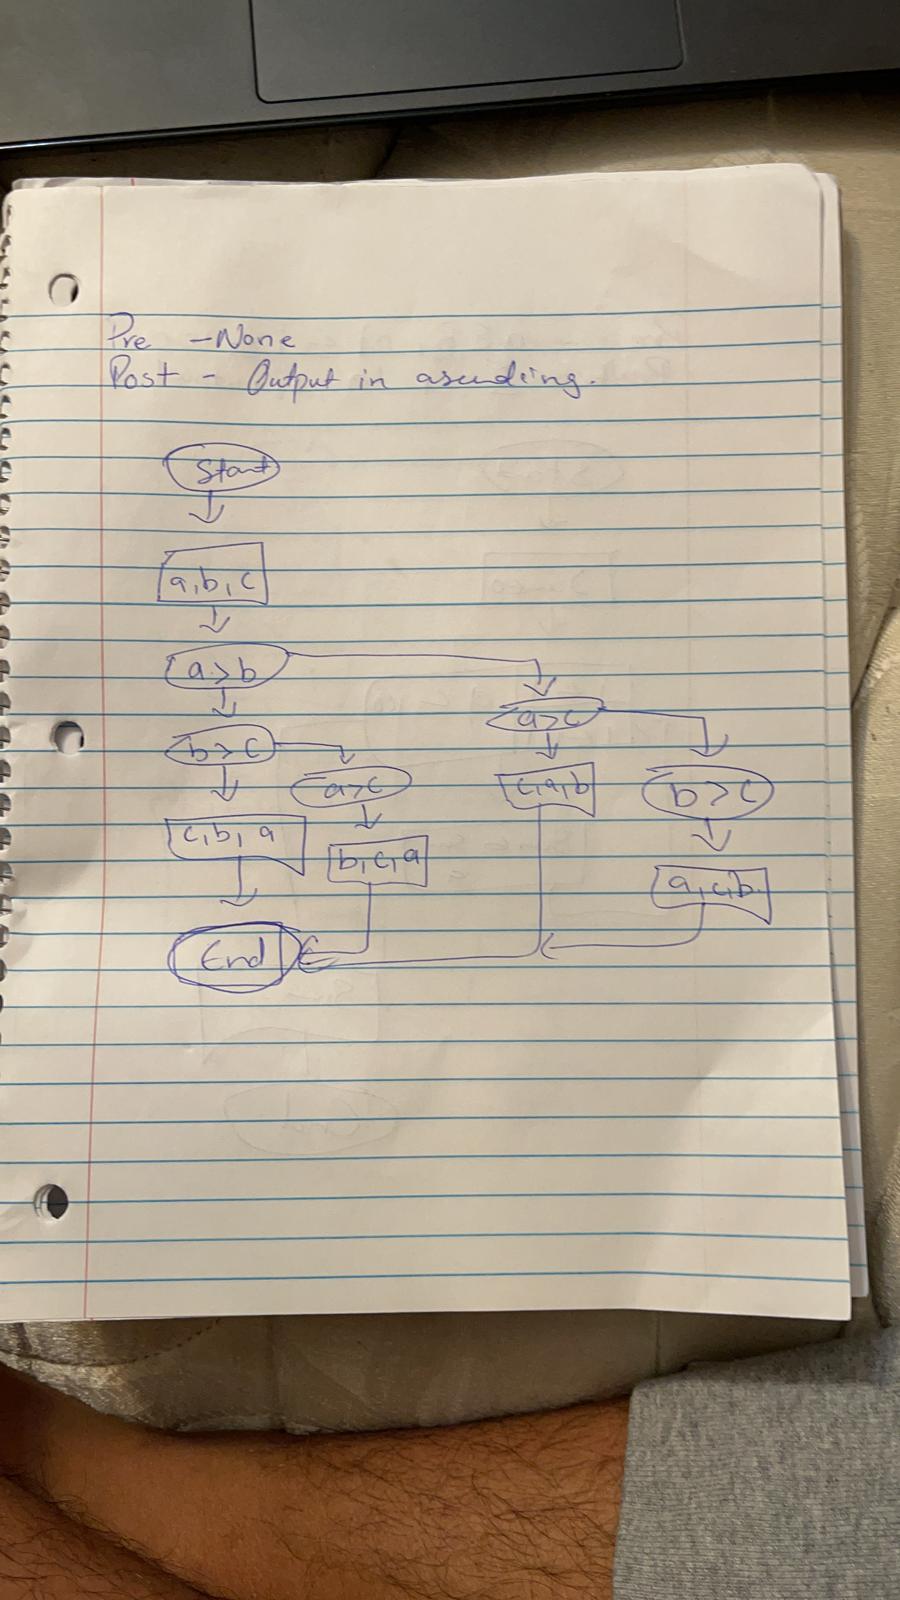 Pre - None
Post - Output in asending.
Start
a, b, c
a > b
a > c
b > c
a > c
c, a, b
b > c
c, b, a
b, c, a
a, c, b
End